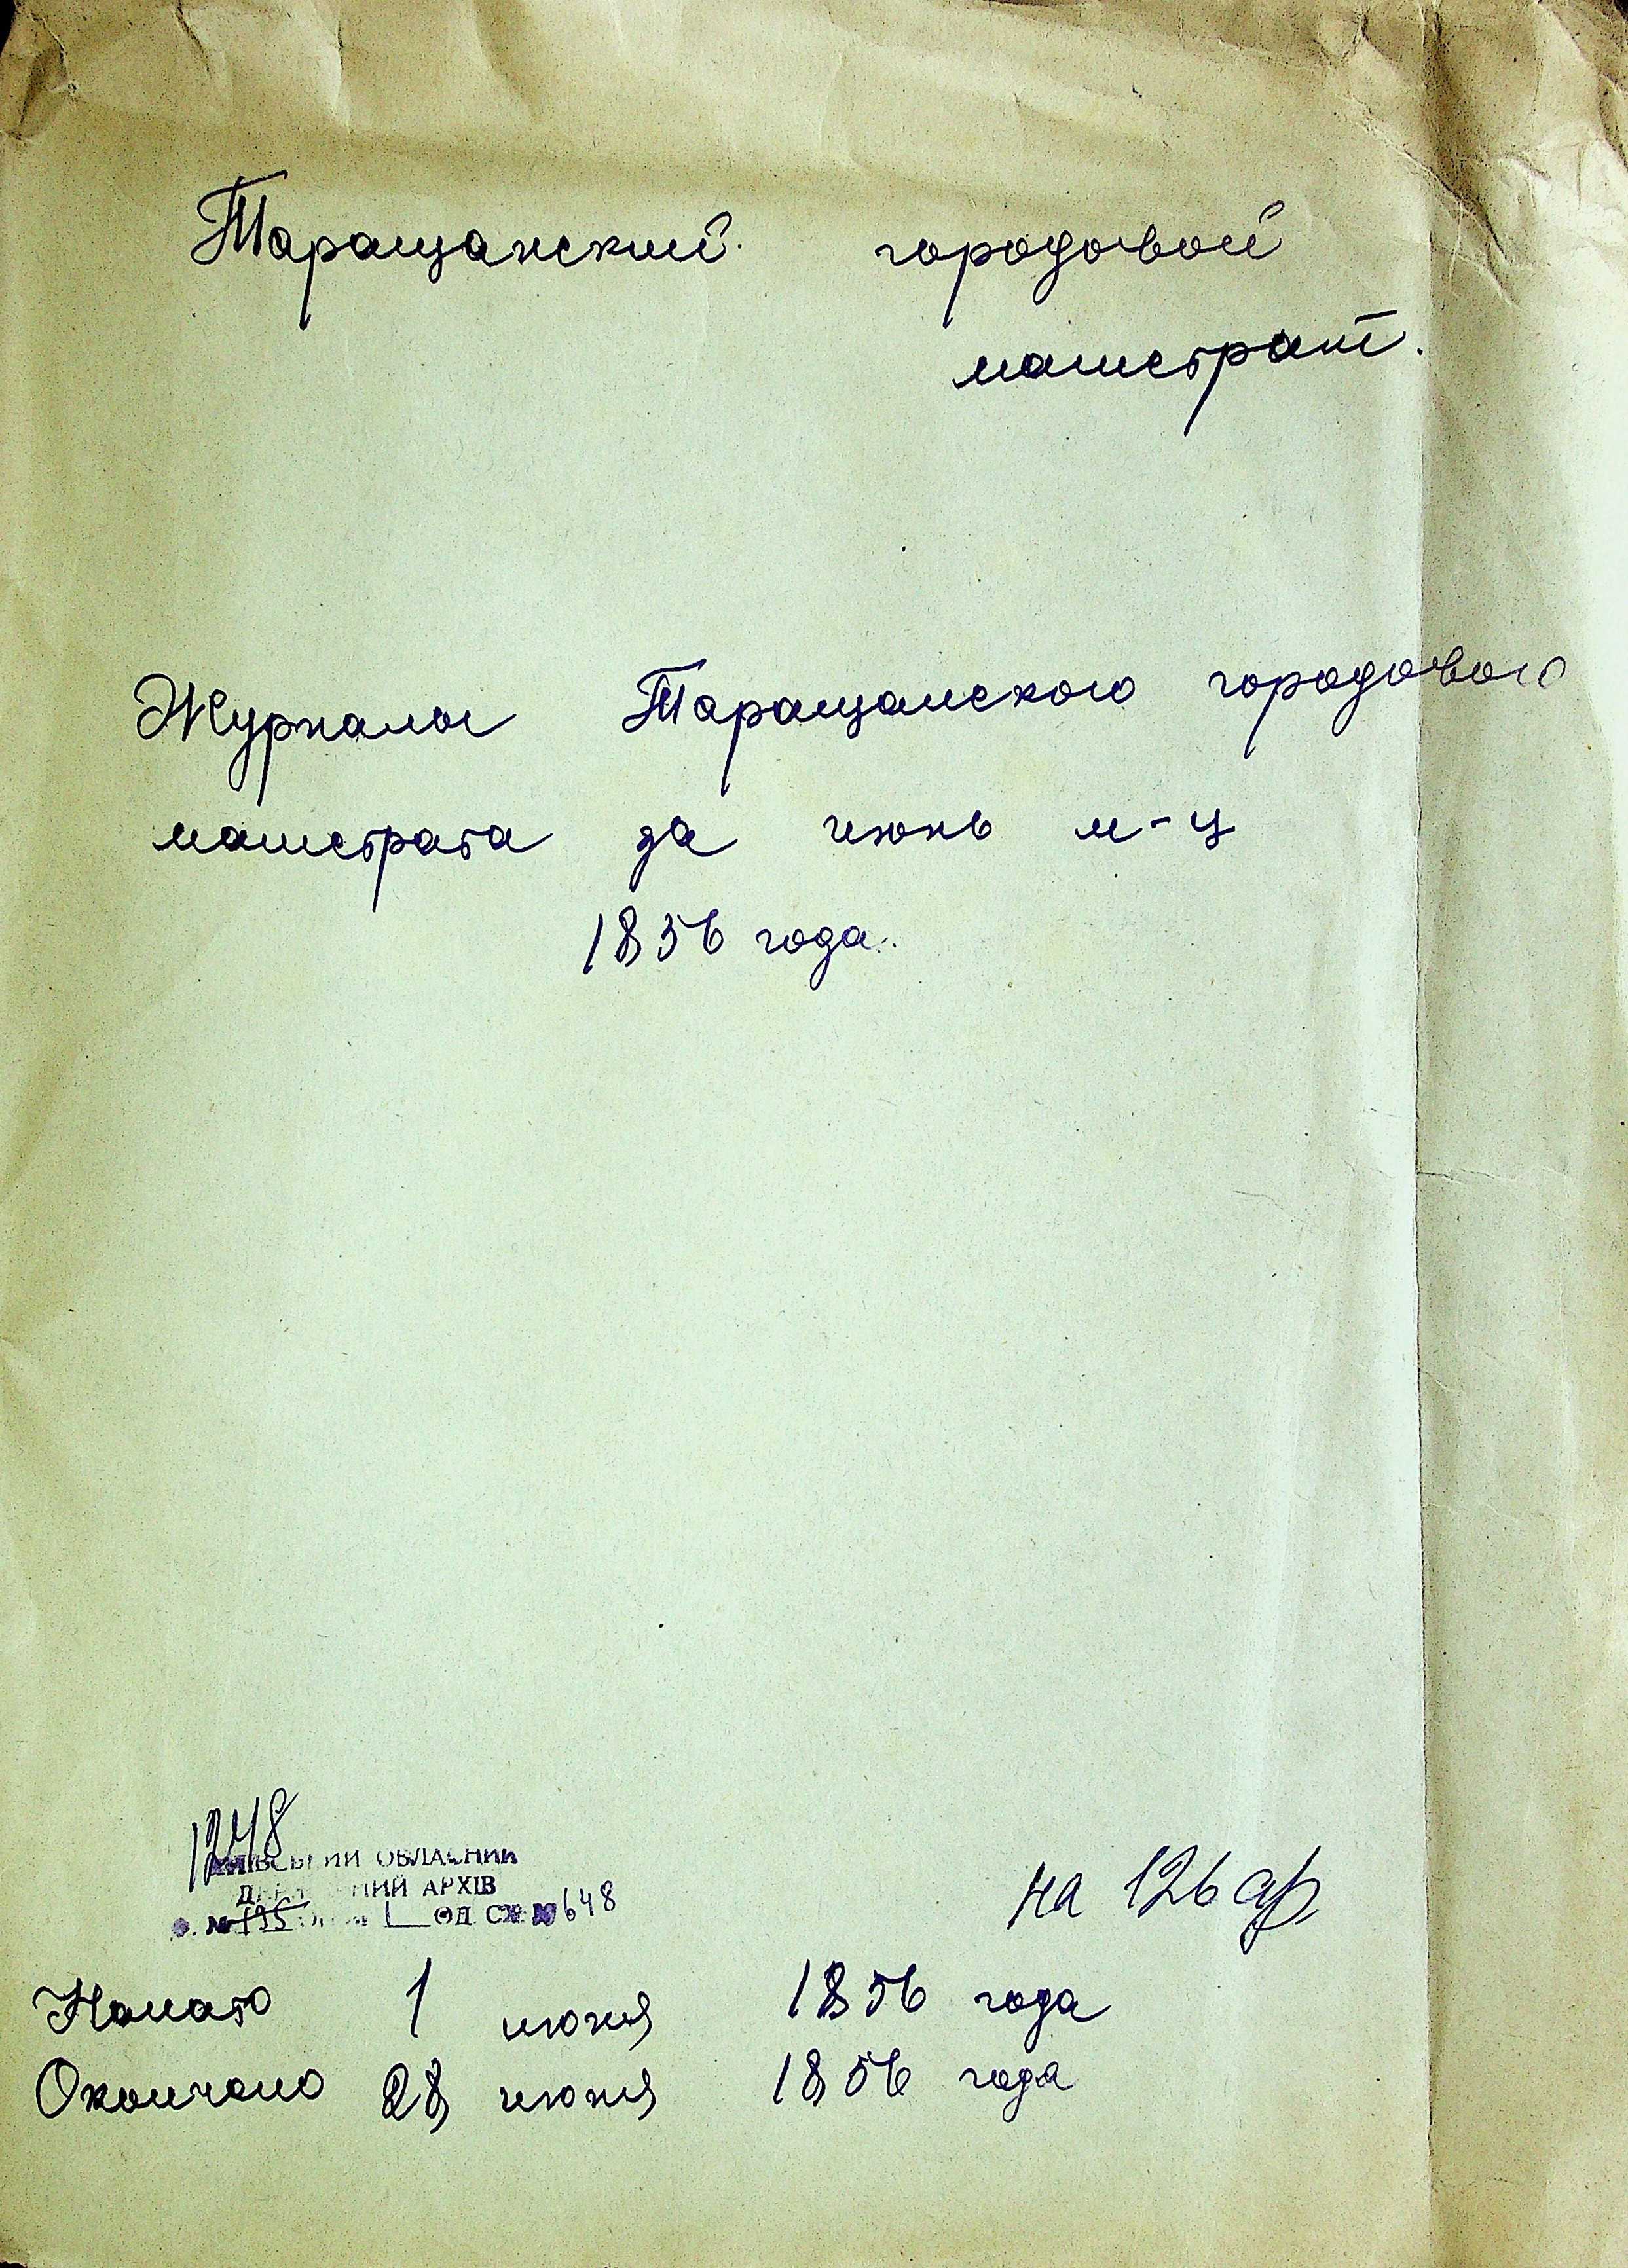 Таращанский городовой
магистрат.
Журналы Таращанского городового
магистрата за июнь м-ц
1856 года.
1248
КИЇВСЬКИЙ ОБЛАСНИЙ
ДЕРЖАВНИЙ АРХІВ
Ф. № 195 опис 1 ОД. СХ. № 648
на 126 ар
Начато 1 июня 1856 года
Окончено 28 июня 1856 года